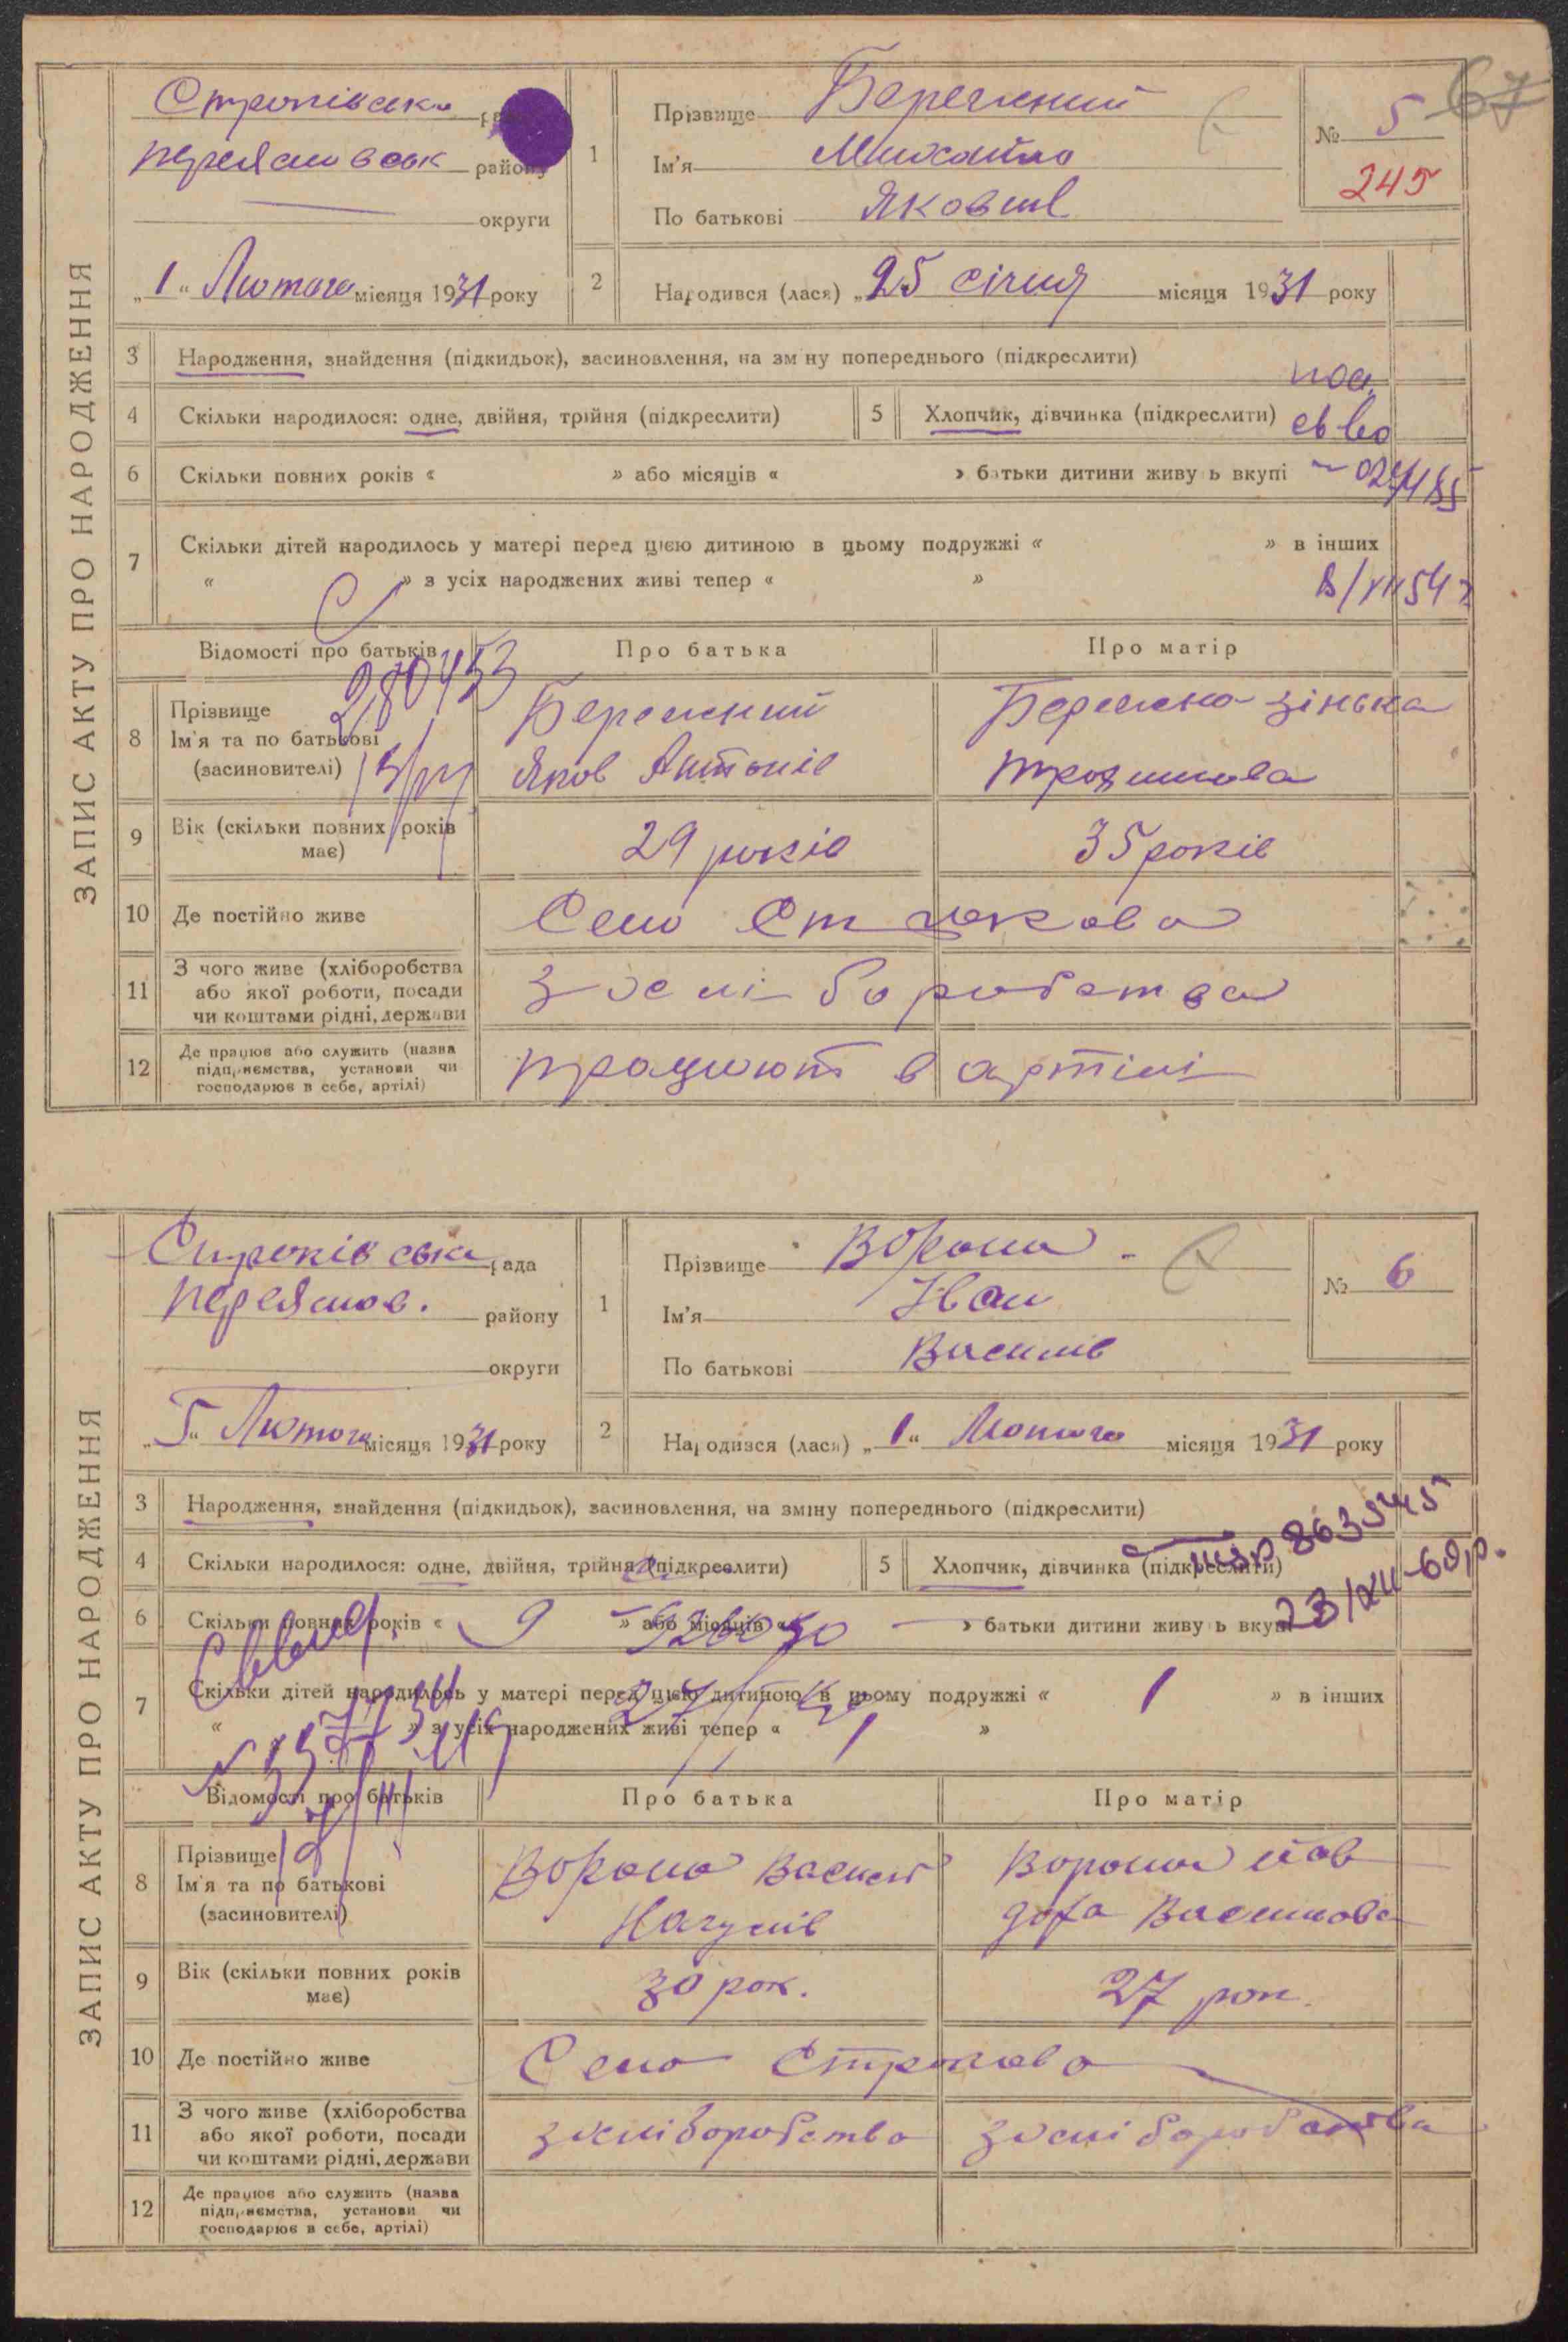 67
ЗАПИС АКТУ ПРО НАРОДЖЕННЯ
Строківська рада
Переяслвськ району
округи
„1“ Лютого місяця 1931 року
1
Прізвище Бережний
Ім'я Михайло
По батькові Яковив
№ 5
245
2
Народився (лася) „25 січня місяця 1931 року
3 Народження, знайдення (підкидьок), засиновлення, на зміну попереднього (підкреслити)
4 Скільки народилося: одне, двійня, трійня (підкреслити)
5 Хлопчик, дівчинка (підкреслити)
6 Скільки повних років « » або місяців « » батьки дитини живуть вкупі
7 Скільки дітей народилось у матері перед цією дитиною в цьому подружжі « » в інших
« » з усіх народжених живі тепер « »
Відомості про батьків Про батька Про матір
8 Прізвище
Ім'я та по батькові
(засиновителі)
Бережний
Яков Антонів
Бережна Зінька
9 Вік (скільки повних років має) 29 років 35 років
10 Де постійно живе Село Строкова
11 З чого живе (хліборобства
або якої роботи, посади
чи коштами рідні, держави
з хліборобства
12 Де працює або служить (назва
підприємства, установи чи
господарює в себе, артілі)
працюют в артілі
ЗАПИС АКТУ ПРО НАРОДЖЕННЯ
Строківська рада
Переяслов. району
округи
„5“ Лютого місяця 1931 року
1
Прізвище Ворона
Ім'я Иван
По батькові Василів
№ 6
2
Народився (лася) „1“ Лютого місяця 1931 року
3 Народження, знайдення (підкидьок), засиновлення, на зміну попереднього (підкреслити)
4 Скільки народилося: одне, двійня, трійня (підкреслити)
5 Хлопчик, дівчинка (підкреслити)
6 Скільки повних років « 9 » або місяців « » батьки дитини живуть вкупі
7 Скільки дітей народилось у матері перед цією дитиною в цьому подружжі « 1 » в інших
« » з усіх народжених живі тепер « 1 »
Відомості про батьків Про батька Про матір
8 Прізвище
Ім'я та по батькові
(засиновителі)
Ворона Василь
Наумів
Ворона Яв
доха Василова
9 Вік (скільки повних років має) 30 рок. 27 рок.
10 Де постійно живе Село Строкова
11 З чого живе (хліборобства
або якої роботи, посади
чи коштами рідні, держави
з хліборобства з хліборобства
12 Де працює або служить (назва
підприємства, установи чи
господарює в себе, артілі)